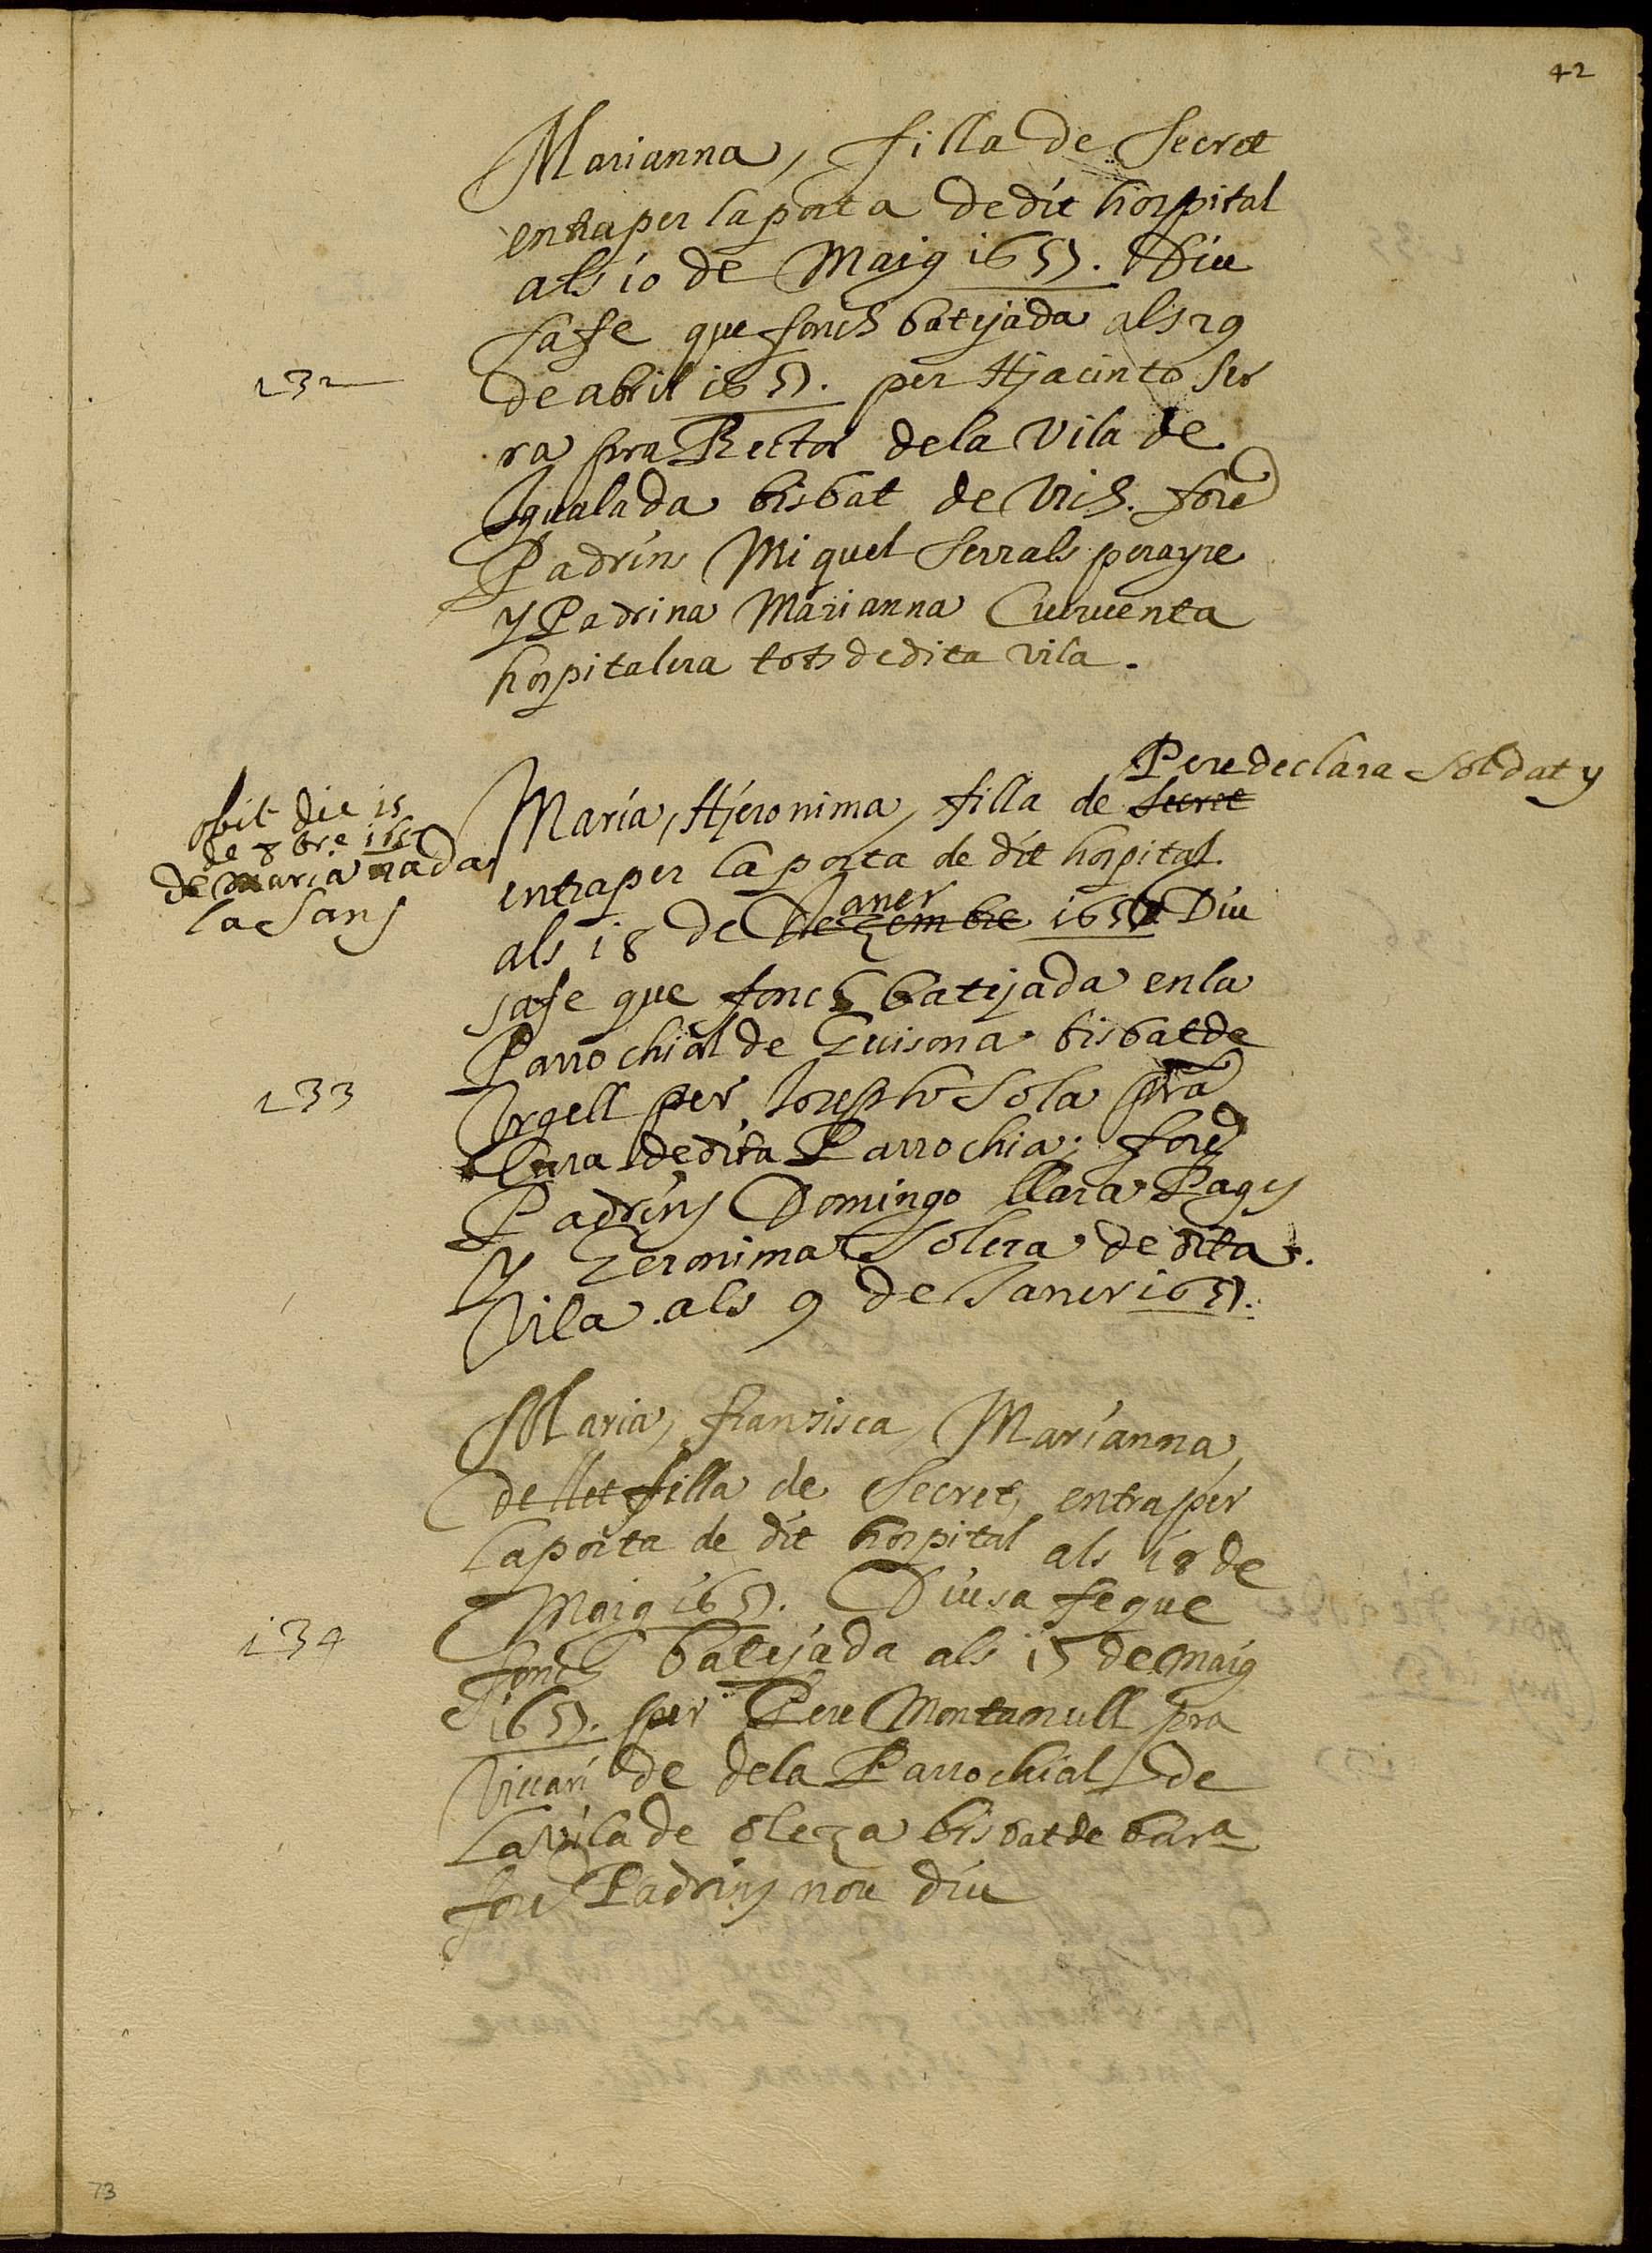 42
Marianna, filla de Secret
entra per la porta de dit hospital
als 10 de Maig 1657. Diu
sa fe que fonch batejada als 29
132
de abril 1657. per Hjacinto Ser
ra pra Rector de la Vila de
Igualada bisbat de Vich. fore
Padrins Miquel Serrals perayre
y Padrina Marianna
hospitalera tots de dita vila.
Pere de clara Soldat y
Maria, Hjeronima, filla de Secret
obit die 15
de 8bre 1657
de Maria nada
la Sans
entra per la porta de dit hospital.
Janer
als 18 de Dezembre 1657 Diu
sa fe que fonch batejada en la
Parrochial de Guisona bisbat de
133
Urgell per Joseph Sola pra
Cura de dita Parrochia; fore
Padrins Domingo llara Pages
y Geronima Solera de dita
Vila als 9 de Janer 1657.
Maria, fransisca, Marianna,
de llet filla de Secret, entra per
la porta de dit hospital als 18 de
Maig 1657. Diu sa fe que
134
fonch batejada als 15 de Maig
1657. per Pere Montamull pra
Viccari de de la Parrochial de
la vila de oleza bisbat de bara
fore Padrins nou diu
73